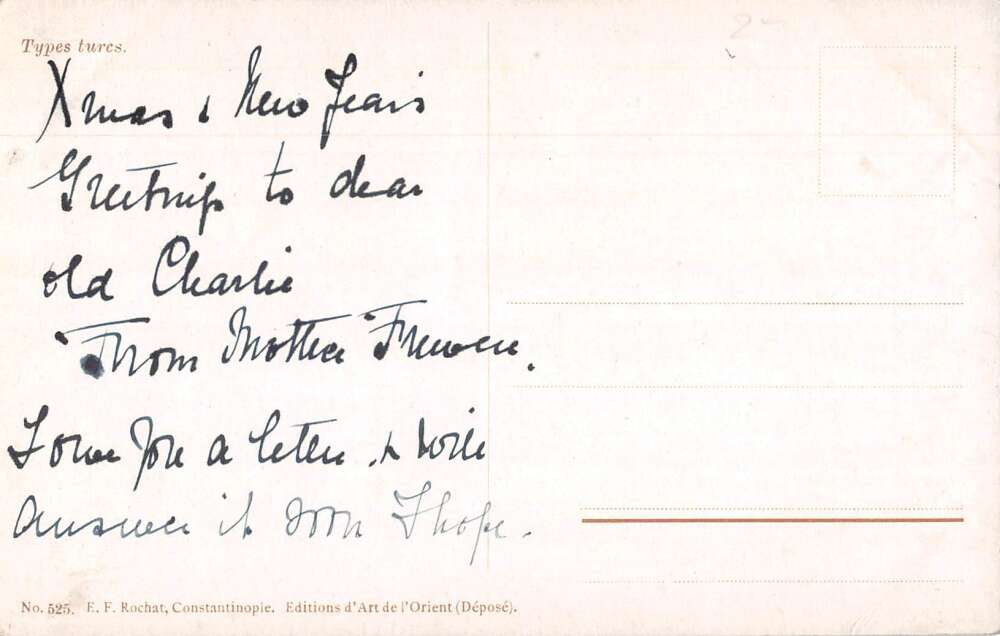 Types turcs.
Xmas & New Years
Greetings to dear
old Charlie
From Mother Frewen.
I owe you a letter & will
answer it soon I hope.
No. 525. E. F. Rochat, Constantinople. Editions d'Art de l'Orient (Déposé).